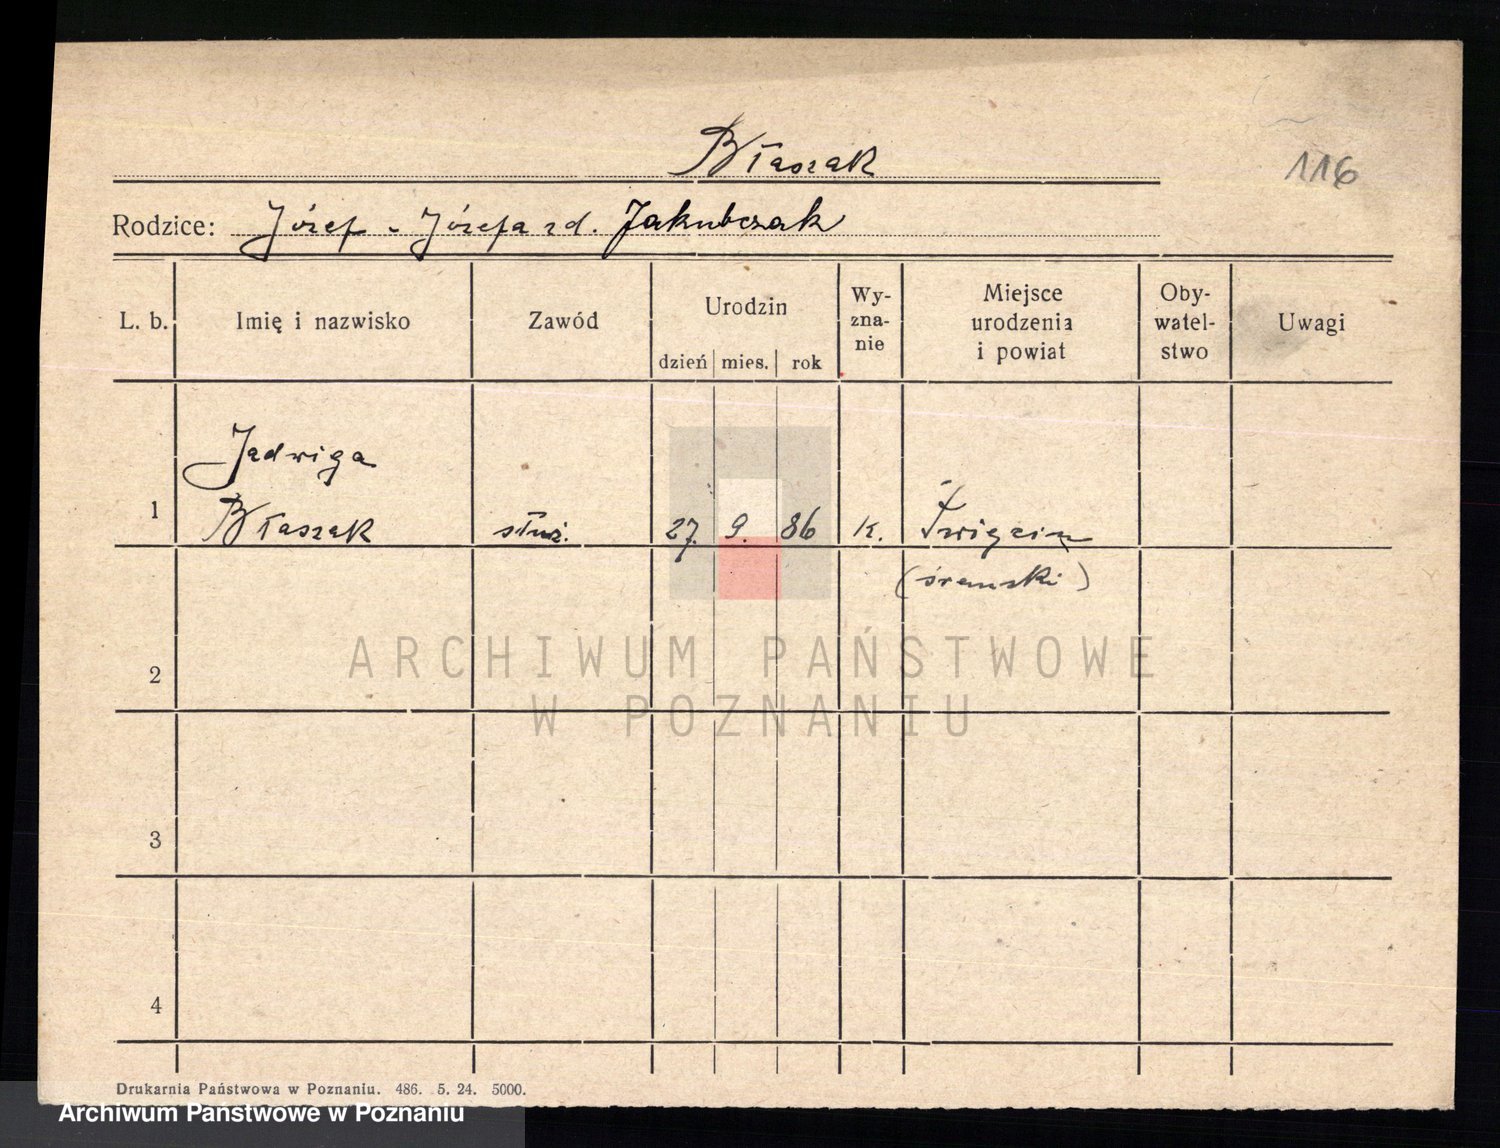 Błaszak
116
Rodzice: Józef - Józefa zd. Jakubczak
L. b. Imię i nazwisko Zawód Urodzin dzień mies. rok Wy-zna-nie Miejsce urodzenia i powiat Oby-watel-stwo Uwagi
Jadwiga
1 Błaszak służ. 27. 9. 86 K.
(śremski)
2
3
4
ARCHIWUM PAŃSTWOWE
W POZNANIU
Drukarnia Państwowa w Poznaniu. 486. 5. 24. 5000.
Archiwum Państwowe w Poznaniu